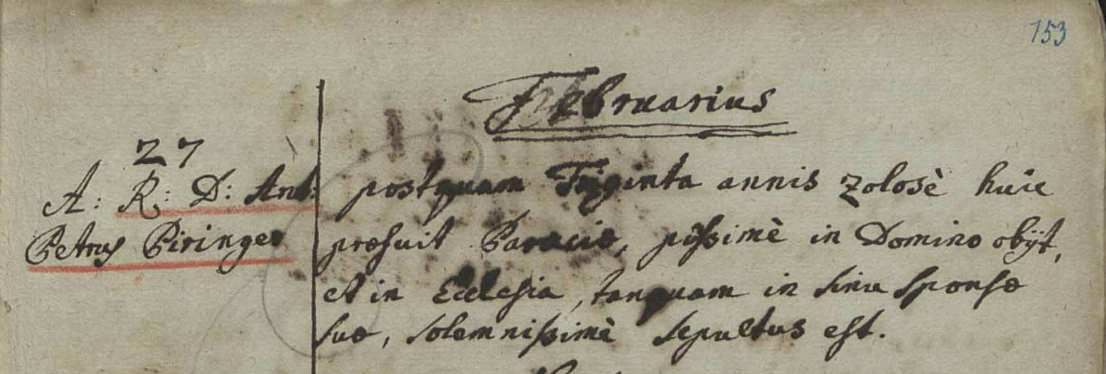 153
Februarius
27
A: R: D: Ant:
Petrus Piringer
postquam Triginta annis zolosè huic
præfuit Paraciæ, pißimè in Domino obijt,
et in Ecclesia, tanquam in sinu sponsæ
suæ, solemnißimè sepultus est.